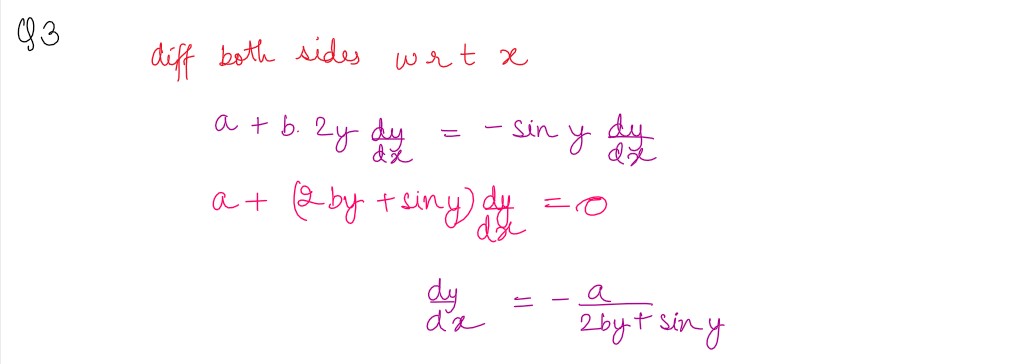 Q3
diff both sides w r t x
a + b. 2y dy/dx = - sin y dy/dx
a + (2by + siny) dy/dx = 0
dy/dx = - a/(2by + sin y)